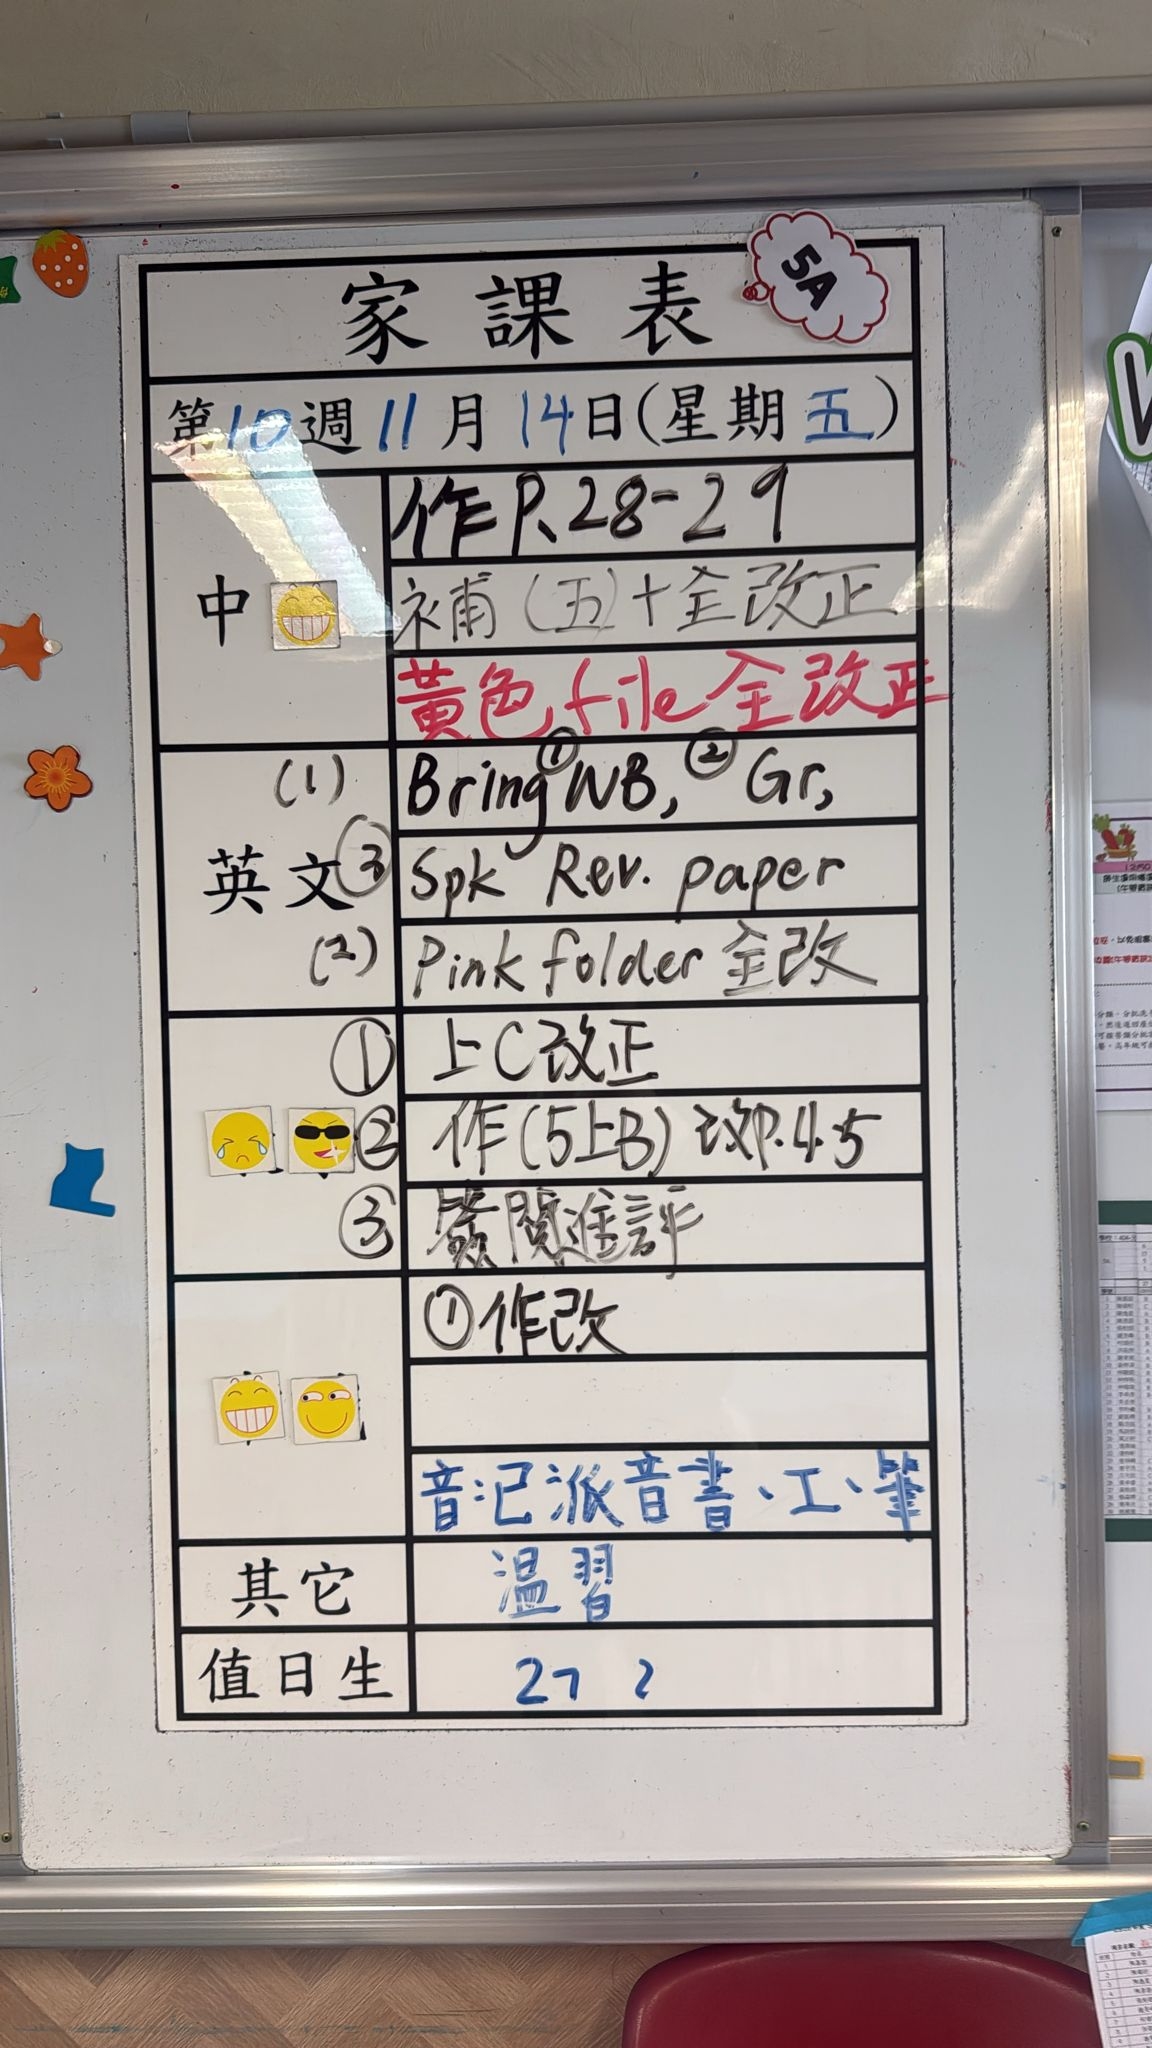 家課表
5A
第10週11月14日(星期五)
中
作P.28-29
補(五)+全改正
黃色file全改正
英文
(1) Bring ①WB, ②Gr,
③ Spk Rev. paper
(2) Pink folder 全改
① 上C改正
② 作(5上B) 改P.4-5
③ 簽閱進評
①作改
音:已派音書、工、筆
其它
溫習
值日生
27 2